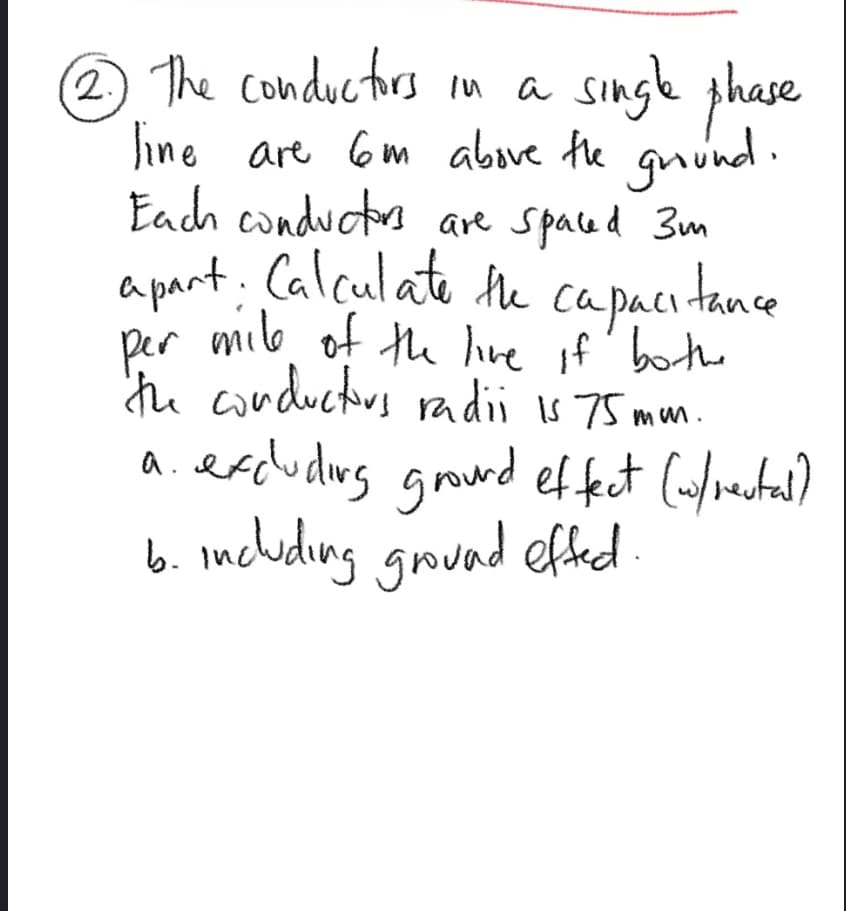 2. The conductors in a single phase
line are 6m above the ground.
Each conductors are spaced 3m
apart. Calculate the capacitance
per mile of the line if both
the conductors radii is 75 mm.
a. excluding ground effect (w/neutal)
b. including ground effect.